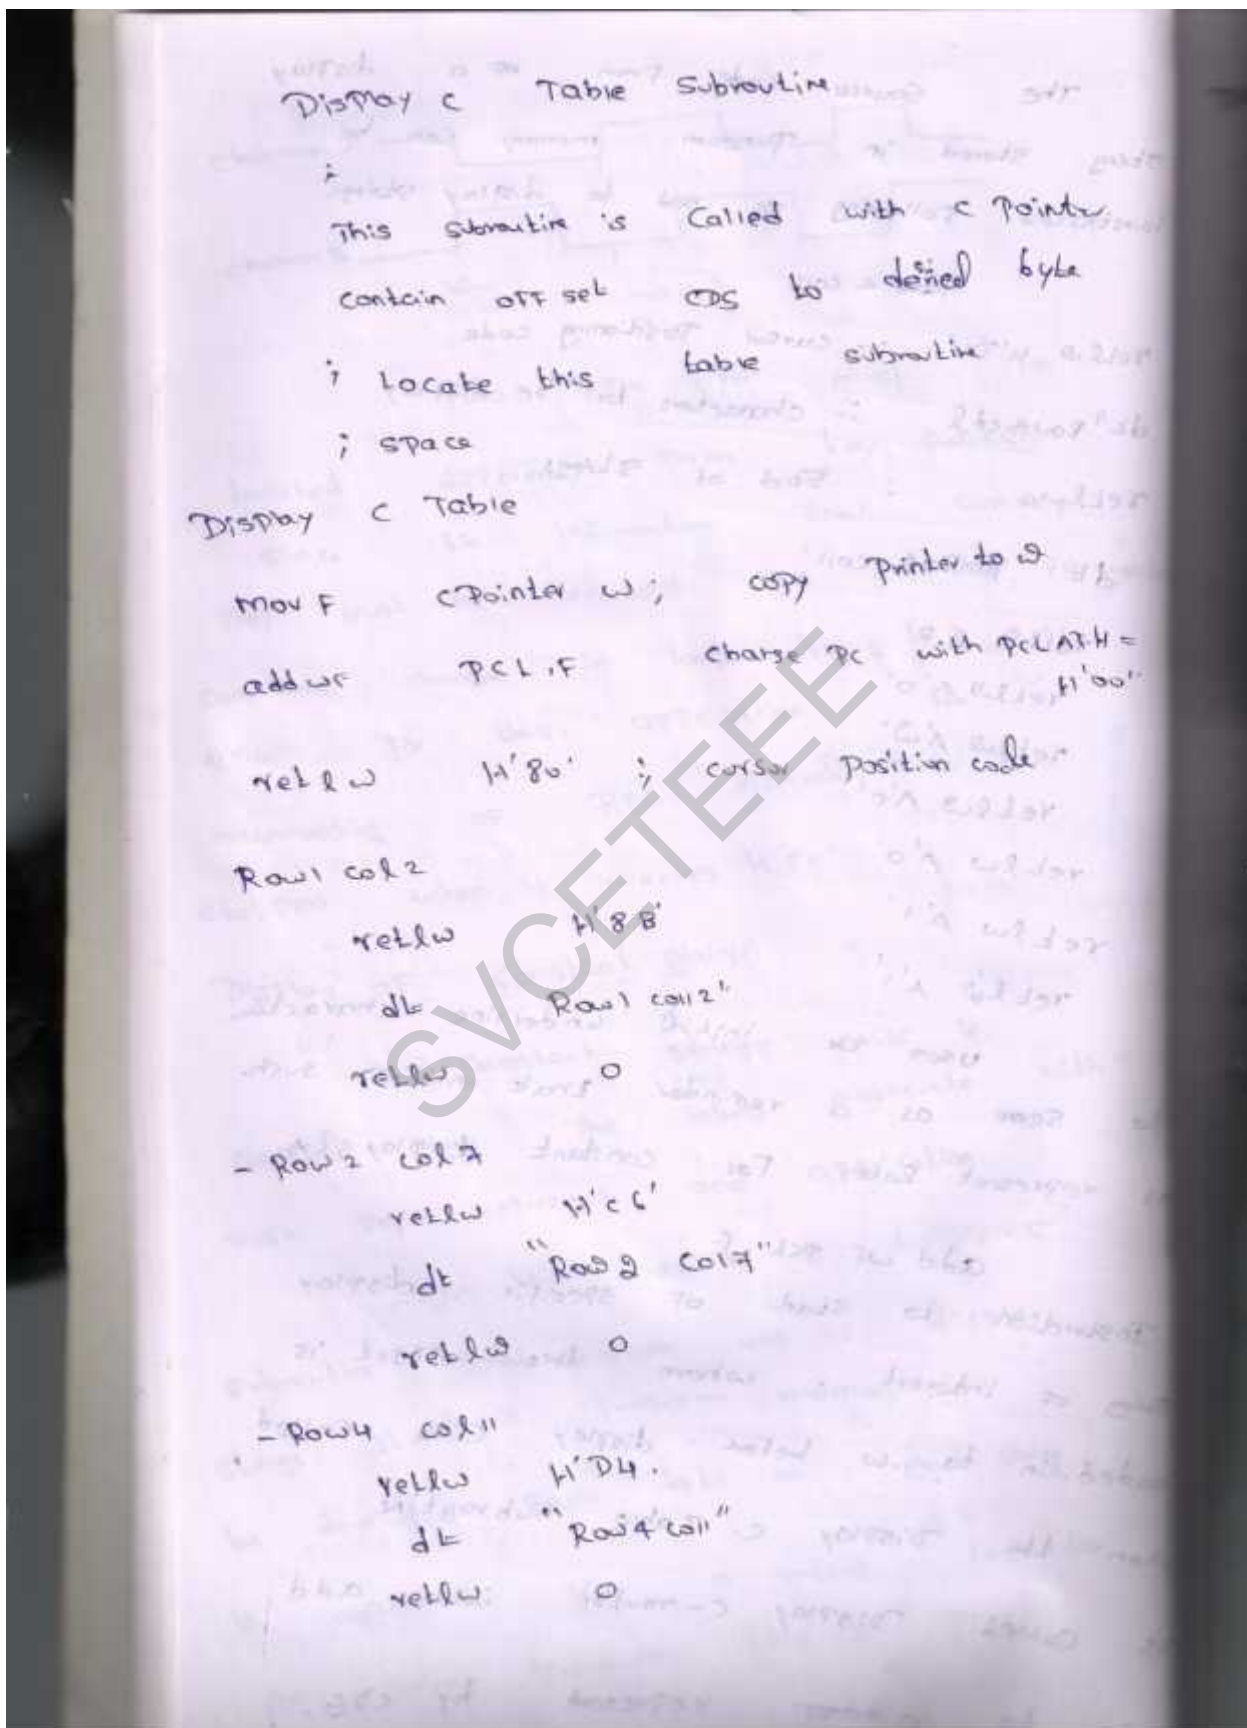 Display C Table Subroutine
;
This subroutine is Called with C Pointer
contain off set CDS to desired byte
; Locate this table subroutine
; space
Display C Table
mov F CPointer w; copy printer to w
addwf PCL,F change PC with PCLATH =
H'00"
retlw H'80' ; cursor position code
Row1 col2
retlw H'8B'
dt Row1 col12'
retlw 0
- Row2 col7
retlw H'C6'
dt "Row2 Col7"
retlw 0
- Row4 col11
retlw H'D4.
dt "Row4 col1"
retlw 0
SVCETEEE